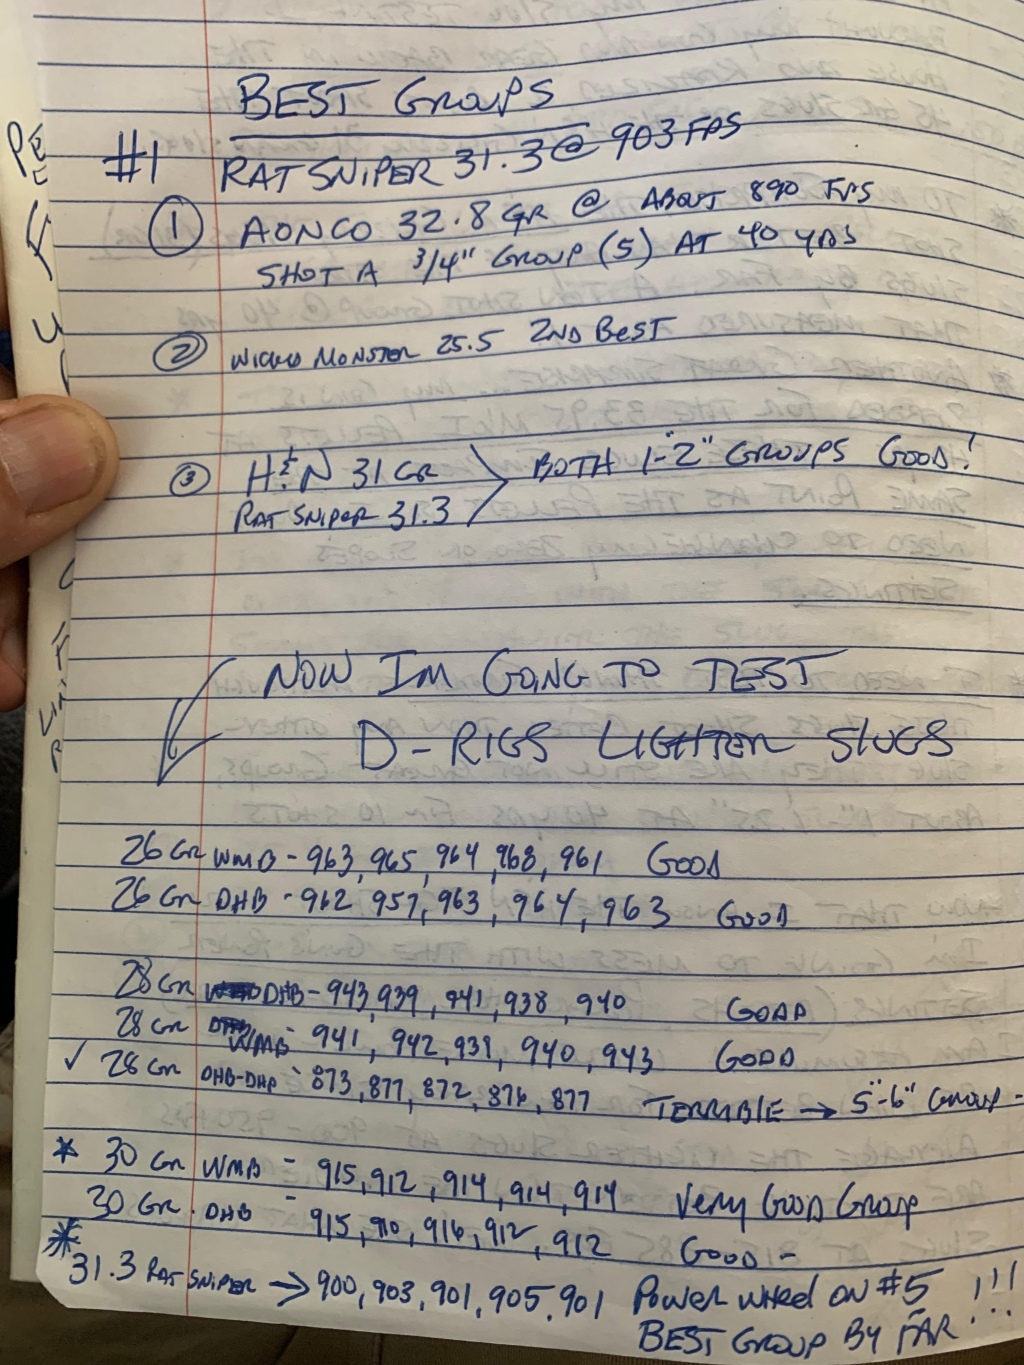 BEST GROUPS
#1 RAT SNIPER 31.3 @ 903 FPS
① AONCO 32.8 GR @ ABOUT 890 FPS
SHOT A 3/4" GROUP (5) AT 40 YDS
② WICKED MONSTER 25.5 2ND BEST
③ H&N 31 GR
RAT SNIPER 31.3
BOTH 1-2" GROUPS GOOD!
NOW IM GOING TO TEST
D-RIGS LIGHTER SLUGS
26 GR WMB - 963, 965, 964, 968, 961 GOOD
26 GR DHB - 962 957, 963, 964, 963 GOOD
28 GR DHB - 943, 939, 941, 938, 940 GOOD
28 GR WMB - 941, 942, 939, 940, 943 GOOD
✓ 28 GR DHB-DHP - 873, 877, 872, 876, 877 TERRIBLE → 5"-6" GROUP -
* 30 GR WMB - 915, 912, 914, 914, 914 VERY GOOD GROUP
30 GR. DHB - 915, 910, 916, 912, 912 GOOD -
* 31.3 RAT SNIPER → 900, 903, 901, 905, 901 POWER WHEEL ON #5 !!!
BEST GROUP BY FAR!